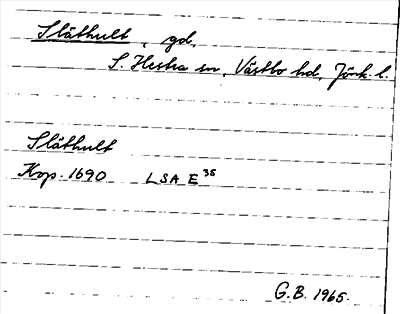 Släthult, gd,
S. Hestra sn, Västbo hd, Jönk. l.
Släthult
Kop. 1690 LSA E 35
G.B. 1965.